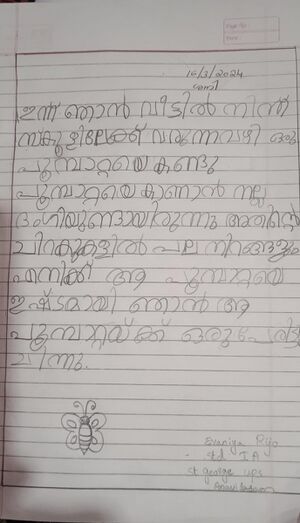 16/3/2024
ശനി
ഇന്ന് ഞാൻ വീട്ടിൽ നിന്ന്
സ്കൂളിലേക്ക് വരുന്നവഴി ഒരു
പൂമ്പാറ്റയെ കണ്ടു
പൂമ്പാറ്റയെ കാണാൻ നല്ല
ഭംഗിയുണ്ടായിരുന്നു അതിന്റെ
ചിറകുകളിൽ പല നിറങ്ങളും
എനിക്ക് ആ പൂമ്പാറ്റയെ
ഇഷ്ടമായി ഞാൻ ആ
പൂമ്പാറ്റയ്ക്ക് ഒരു പേരിട്ടു
ചിന്നു.
Std I A
St george ups